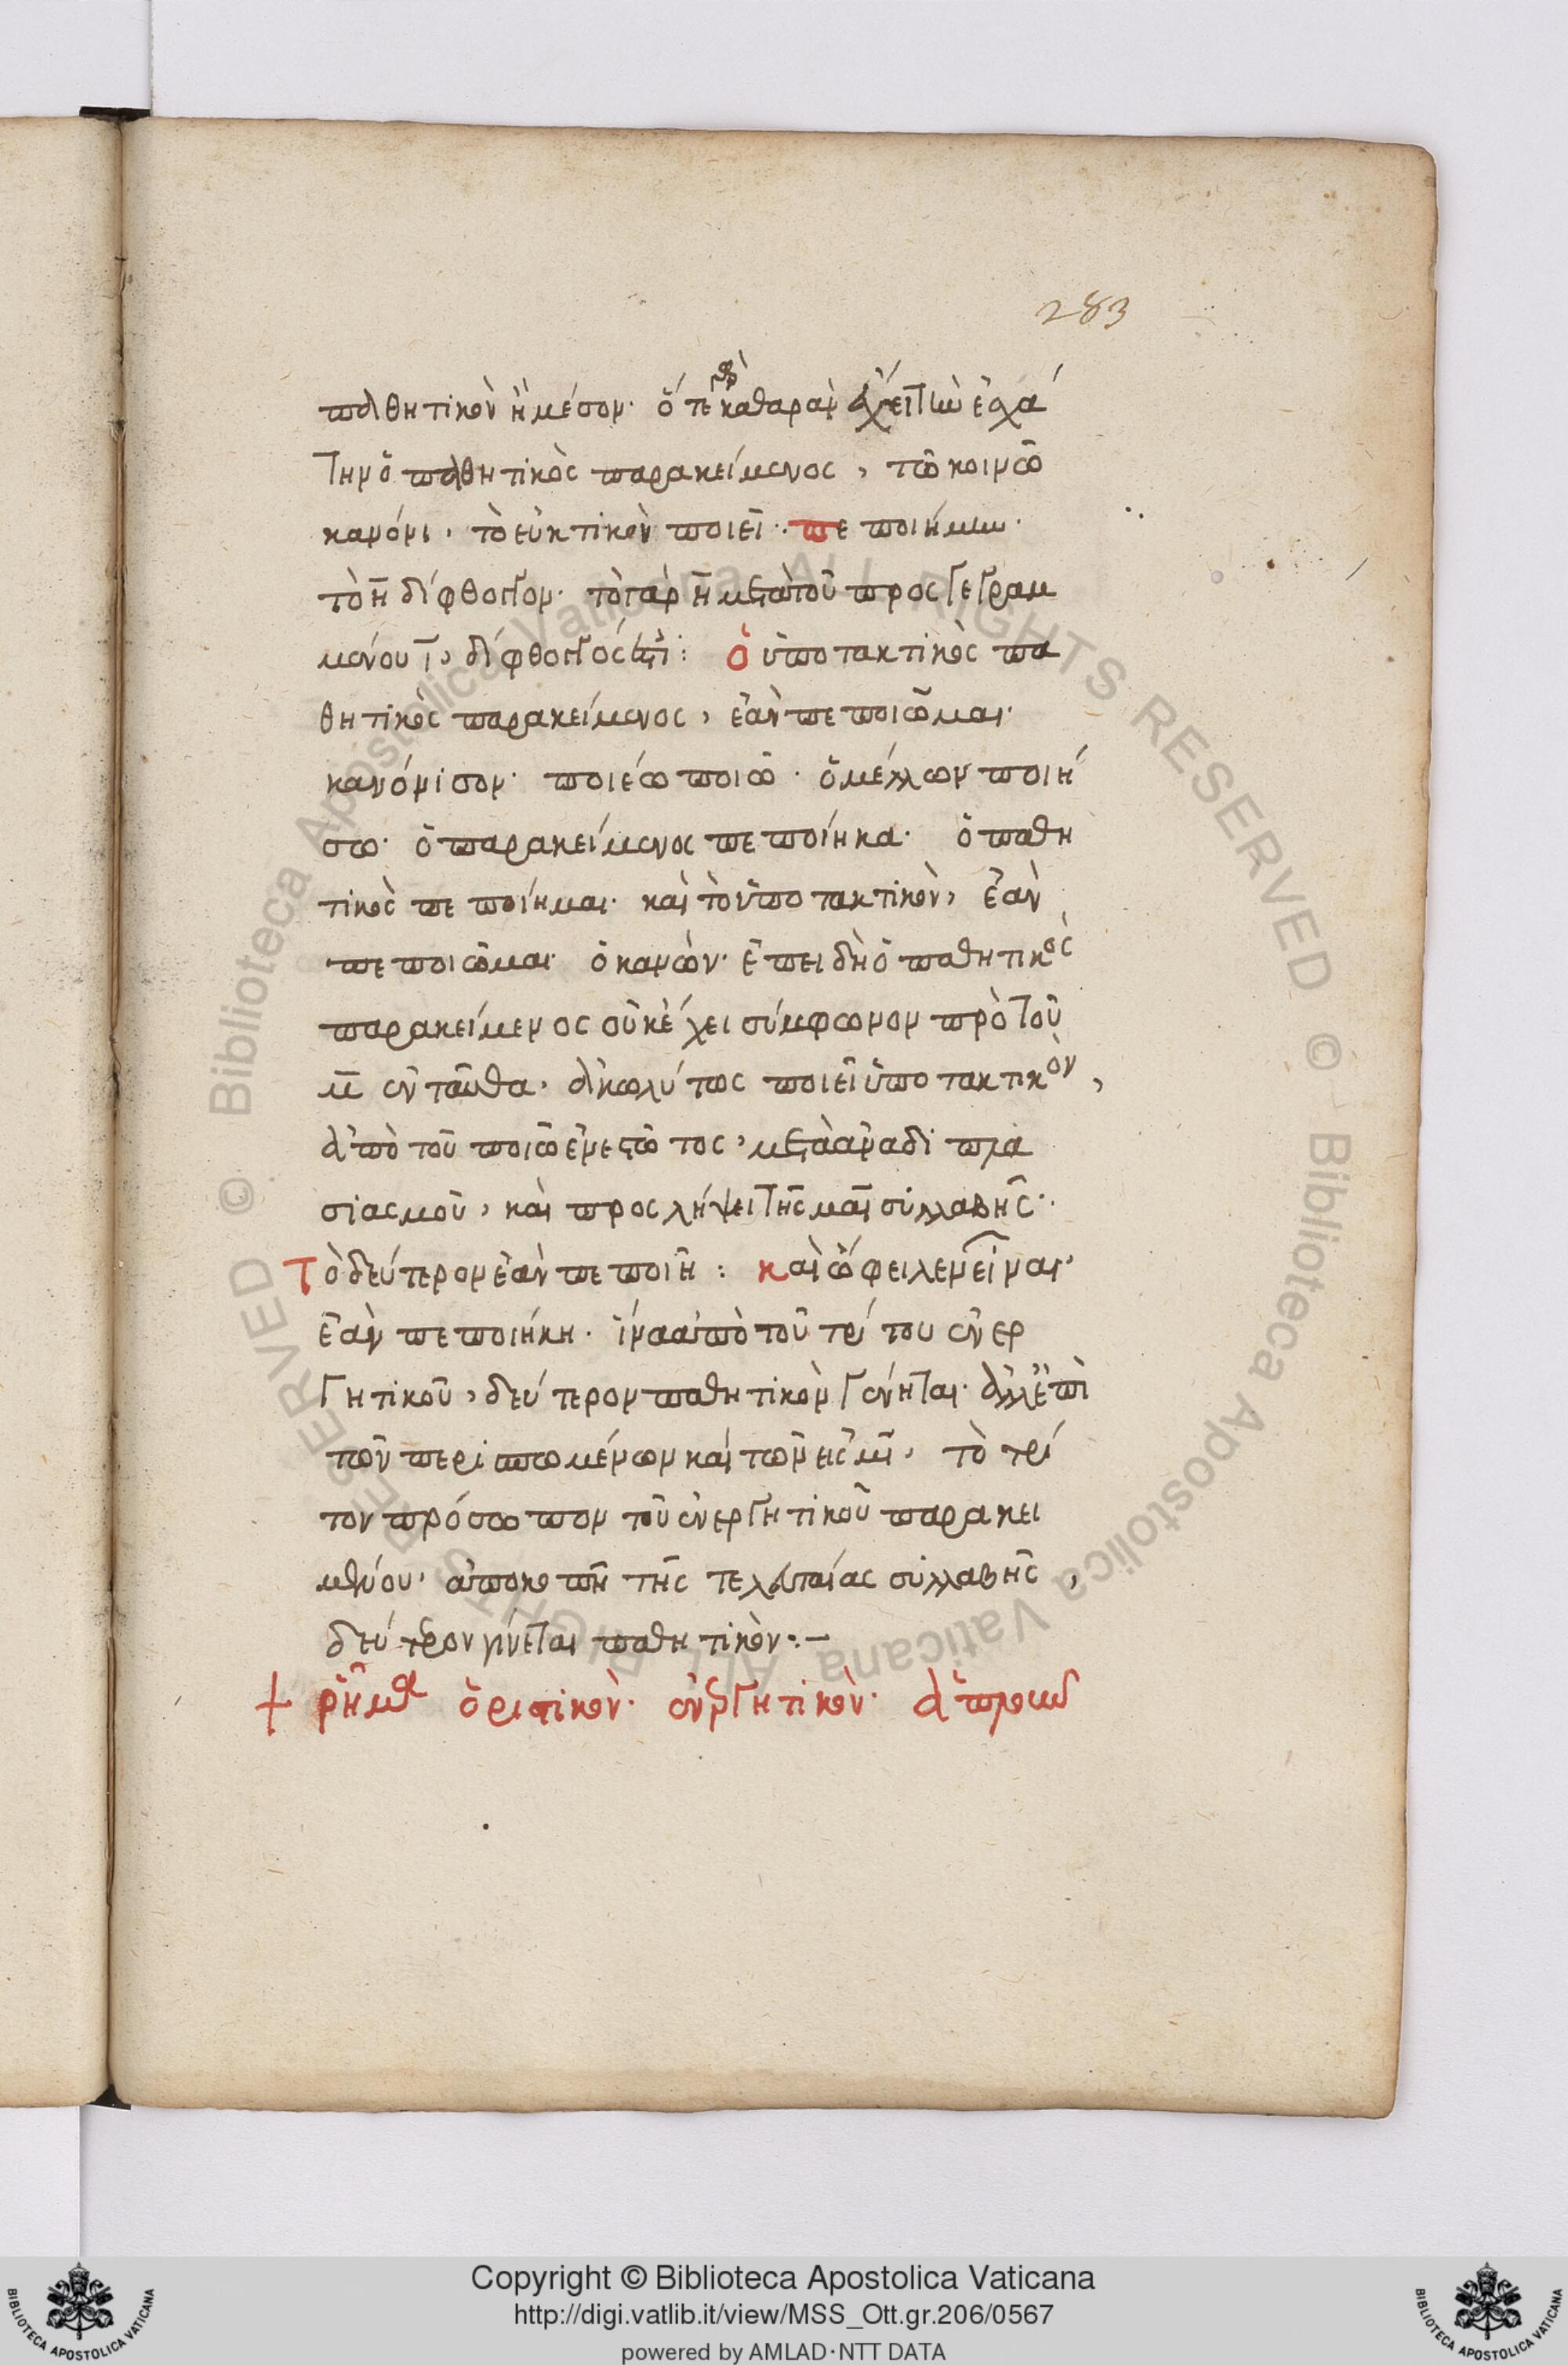 283
παθητικὸν ἢ μέσον· ὅτε καθαρὰν ἔχει τὴν ἐσχά
την ὁ παθητικὸς παρακείμενος, τῶ κοινῶ
κανόνι, τὸ εὐκτικὸν ποιεῖ· πεποιήμην·
τὸ η̄ δίφθογγον· τὸ γὰρ η̄ μετὰ τοῦ προσγεγραμ
μένου ϊ, δίφθογγός ἐστι: ὁ ὑποτακτικὸς πα
θητικὸς παρακείμενος, ἐὰν πεποιῶμαι·
κανόνισον· ποιέω ποιῶ· ὁ μέλλων ποιή
σω· ὁ παρακείμενος πεποίηκα· ὁ παθη
τικὸς πεποίημαι· καὶ τὸ ὑποτακτικὸν, ἐὰν
πεποιῶμαι· ὁ κανών· ἐπειδὴ ὁ παθητικὸς
παρακείμενος οὐκ ἔχει σύμφωνον πρὸ τοῦ
μ̄ ἐνταῦθα, ἀκωλύτως ποιεῖ ὑποτακτικὸν,
ἀπὸ τοῦ ποιῶ ἐνεστῶτος, μετὰ ἀναδιπλα
σιασμοῦ, καὶ προσλήψει τῆς μαι συλλαβῆς·
Τὸ δεύτερον ἐὰν πεποιῆ: καὶ ὤφειλεν εἶναι·
ἐὰν πεποιήκη· ἵνα ἀπὸ τοῦ τρίτου ἐνερ
γητικοῦ, δεύτερον παθητικὸν γένηται· ἀλλ' ἐπὶ
τῶν περισπωμένων καὶ τῶν εἰς μι, τὸ τρί
τον πρόσωπον τοῦ ἐνεργητικοῦ παρακει
μένου, ἀποκοπῆ τῆς τελευταίας συλλαβῆς,
δεύτερον γίνεται παθητικόν:–
+ ῥῆμα ὁριστικὸν· ἐνεργητικὸν· ἁπλοῦν
Copyright © Biblioteca Apostolica Vaticana
http://digi.vatlib.it/view/MSS_Ott.gr.206/0567
powered by AMLAD·NTT DATA